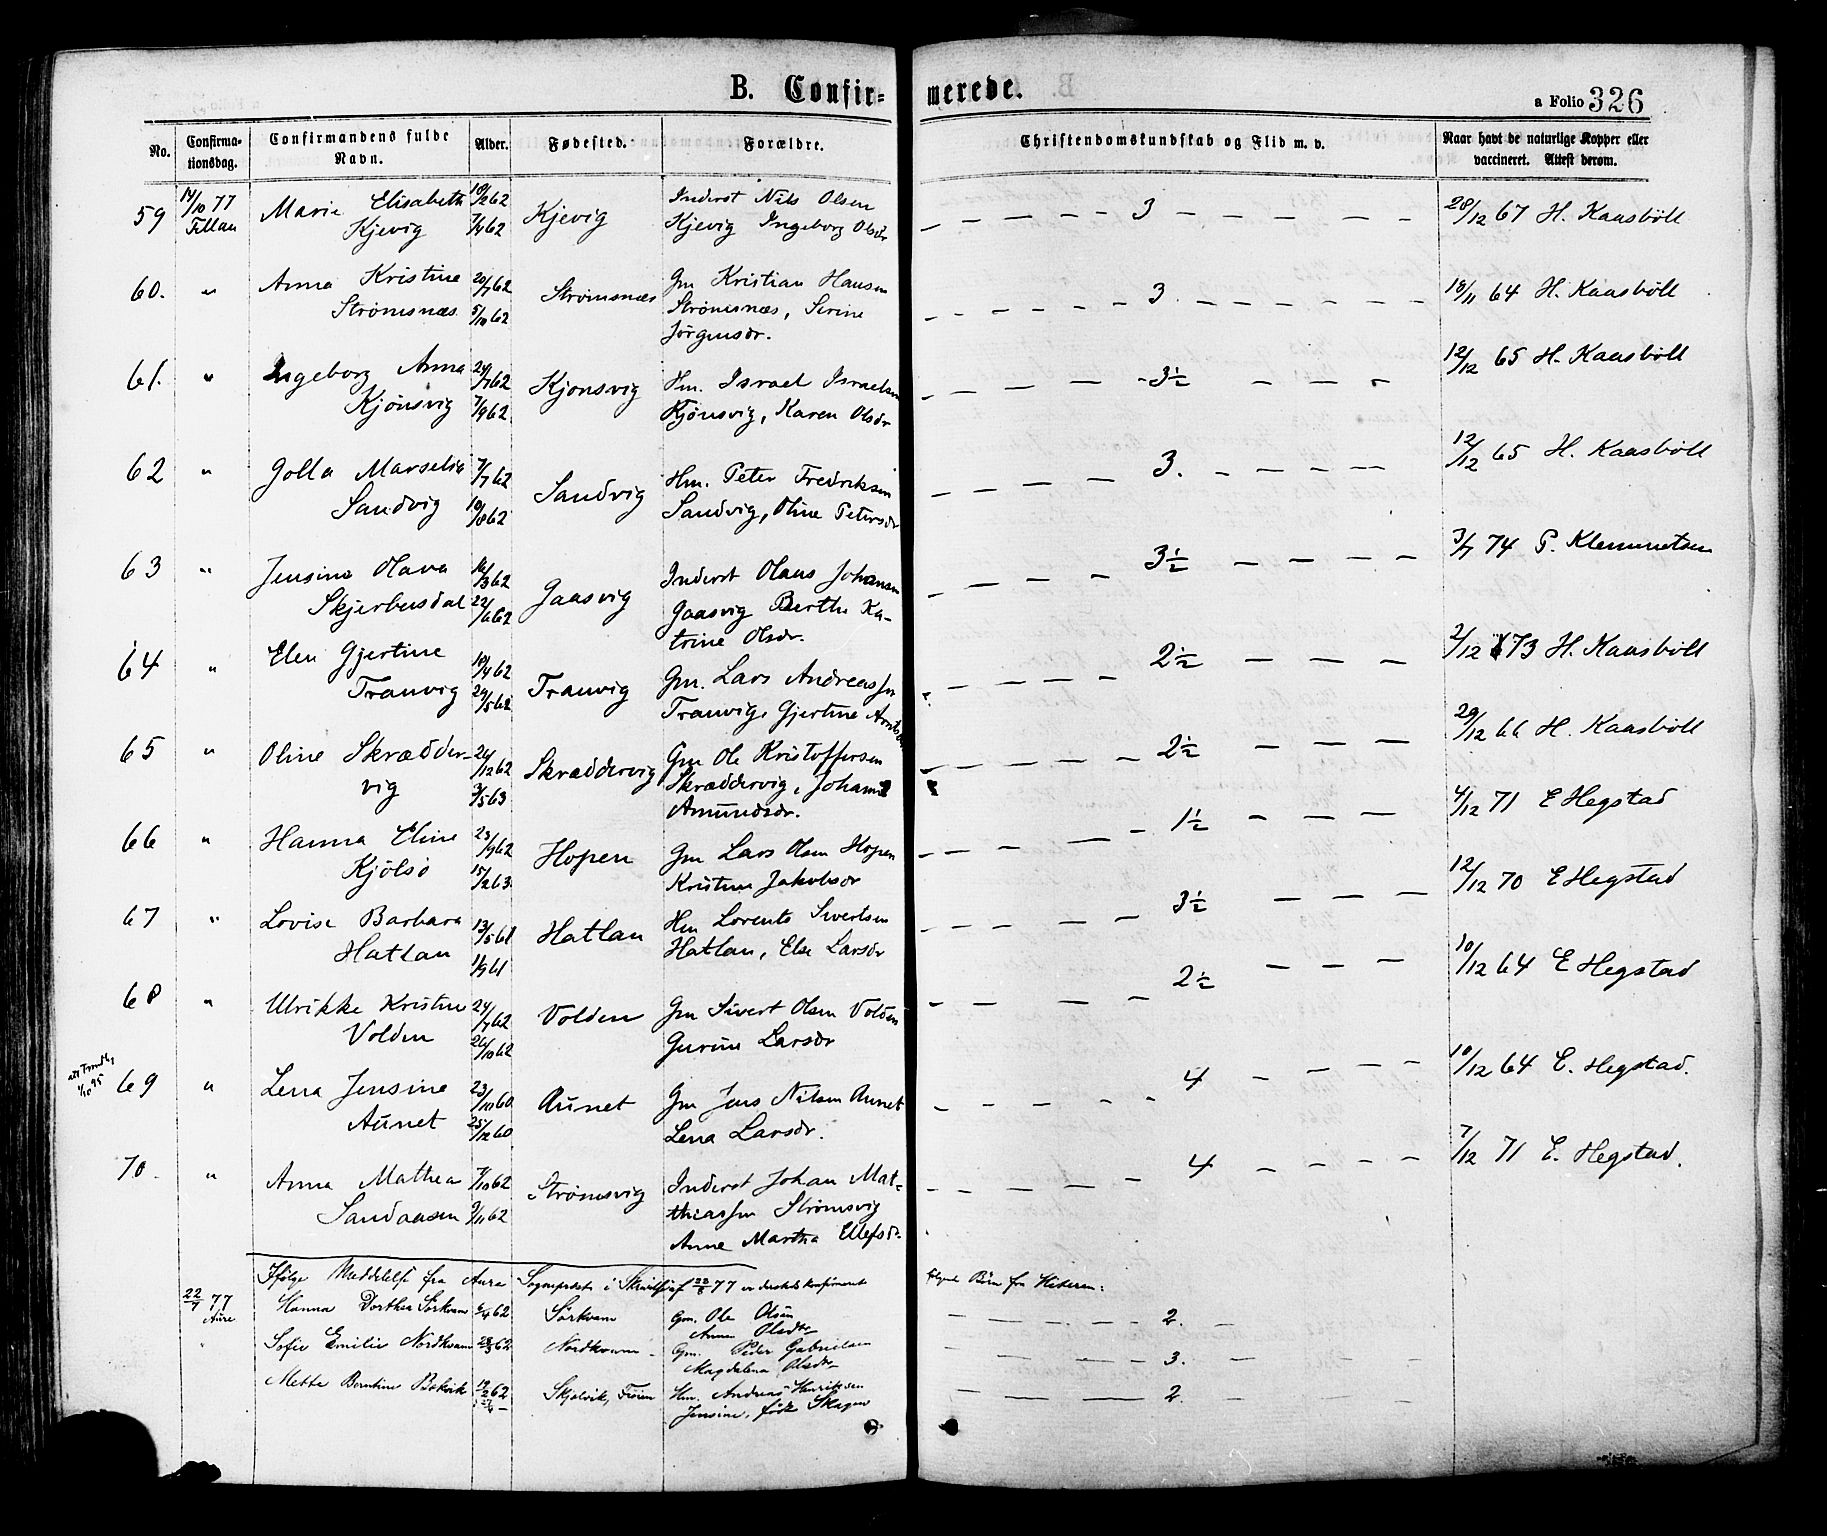 B. Confir- merede.
a Folio 326
No. Confirma-tionsdag. Confirmandens fulde Navn. Alder. Fødested. Forældre. Christendomskundskab og Flid m. v. Naar havt de naturlige Kopper eller vaccineret. Attest derom.
59 14/10 77 Marie Elisabeth 10/2 62 Kjevig Inderst Nils Olsen — — — — 3 — — — — 28/12 67 H. Kaasböll
Fillan Kjevig 7/4 62 Kjevig Ingeborg Olsdr
60. " Anna Kristine 20/7 62 Strömsnæs Gm Kristian Hansen — — — — 3. — — — — 18/11 64 H. Kaasböll
Strömsnæs. 5/10 62 Strömsnæs, Serine
Jörgensdr.
61. " Ingeborg Anna 29/7 62 Kjönsvig Hm. Israel Israelsen — — — — 3½ — — — 12/12 65 H. Kaasböll
Kjönsvig 7/9 62 Kjönsvig, Karen Olsdr
62 " Golla Marselia 7/7 62 Sandvig Hm. Peter Fredriksen — — — — 3. — — — — 12/12 65 H. Kaasböll
Sandvig 10/8 62 Sandvig, Oline Petersdr
63 " Jensine Olava 16/3 62 Gaasvig Inderst Olaus Johansen — — — — 3½ — — — — 3/7 74 P. Klemmetsen
Skjerbusdal 22/6 62 Gaasvig Berthe Ka-
trine Olsdr.
64 " Elen Gjertine 10/4 62 Tranvig Gm. Lars Andreassen — — — — 2½ — — — 2/12 73 H. Kaasböll
Tranvig 29/5 62 Tranvig, Gjertine
65 " Oline Skrædder- 24/12 62 Skræddervig Gm Ole Kristoffersen — — — — 2½ — — — 29/12 66 H. Kaasböll
vig 3/5 63 Skræddervig, Johanna
Amundsdr.
66 " Hanna Eline 23/9 62 Hopen Gm Lars Olsen Hopen — — — — 1½ — — — — 4/12 71 E Hegstad
Kjölsö 15/2 63. Kristine Jakobsdr
67 " Lovise Barbara 13/5 61 Hatlan Hm Lorents Sivertsen — — — — 3½ — — — — 12/12 70 E Hegstad
Hatlan 1/9 61 Hatlan, Else Larsdr
68 " Ulrikke Kristine 24/7 62 Volden Gm Sivert Olsen Volden — — — 2½ — — — 10/12 64 E Hegstad
Volden 26/10 62 Gurine Larsdr
69 " Lena Jensine 23/10 60 Aunet Gm Jens Nilsen Aunet — — — — 4 — — — — 10/12 64 E. Hegstad.
Aunet 25/12 60 Lena Larsdr.
70. " Anna Mathea 7/10 62 Strömsvig Inderst Johan Mat- — — — — 4 — — — — 7/12 71 E. Hegstad.
Sandaasen 9/11 62 thiassen Strömsvig
Anne Martha Ellefsdr.
Ifölge Meddelelse fra Aure Sogneprest i Skrivelse af 22/8 77 er dersteds konfirmeret følgende Börn fra Hitteren:
22/7 77 Hanna Dorthea Sörkvam 6/4 62 Sörkvam Gm. Ole Olsen — — — — 2. —
Aure Anne Olsdtr
" Sofie Emilie Nordkvam 28/3 62 Nordkvam Gm. Peder Gabrielsen — — — — 3. — —
Magdelena Olsdtr
Mette Berntine 19/2 62 Skjelvik, Froien Hm. Andreas Henriksen — — — 2. —
Jensine, född Skagen